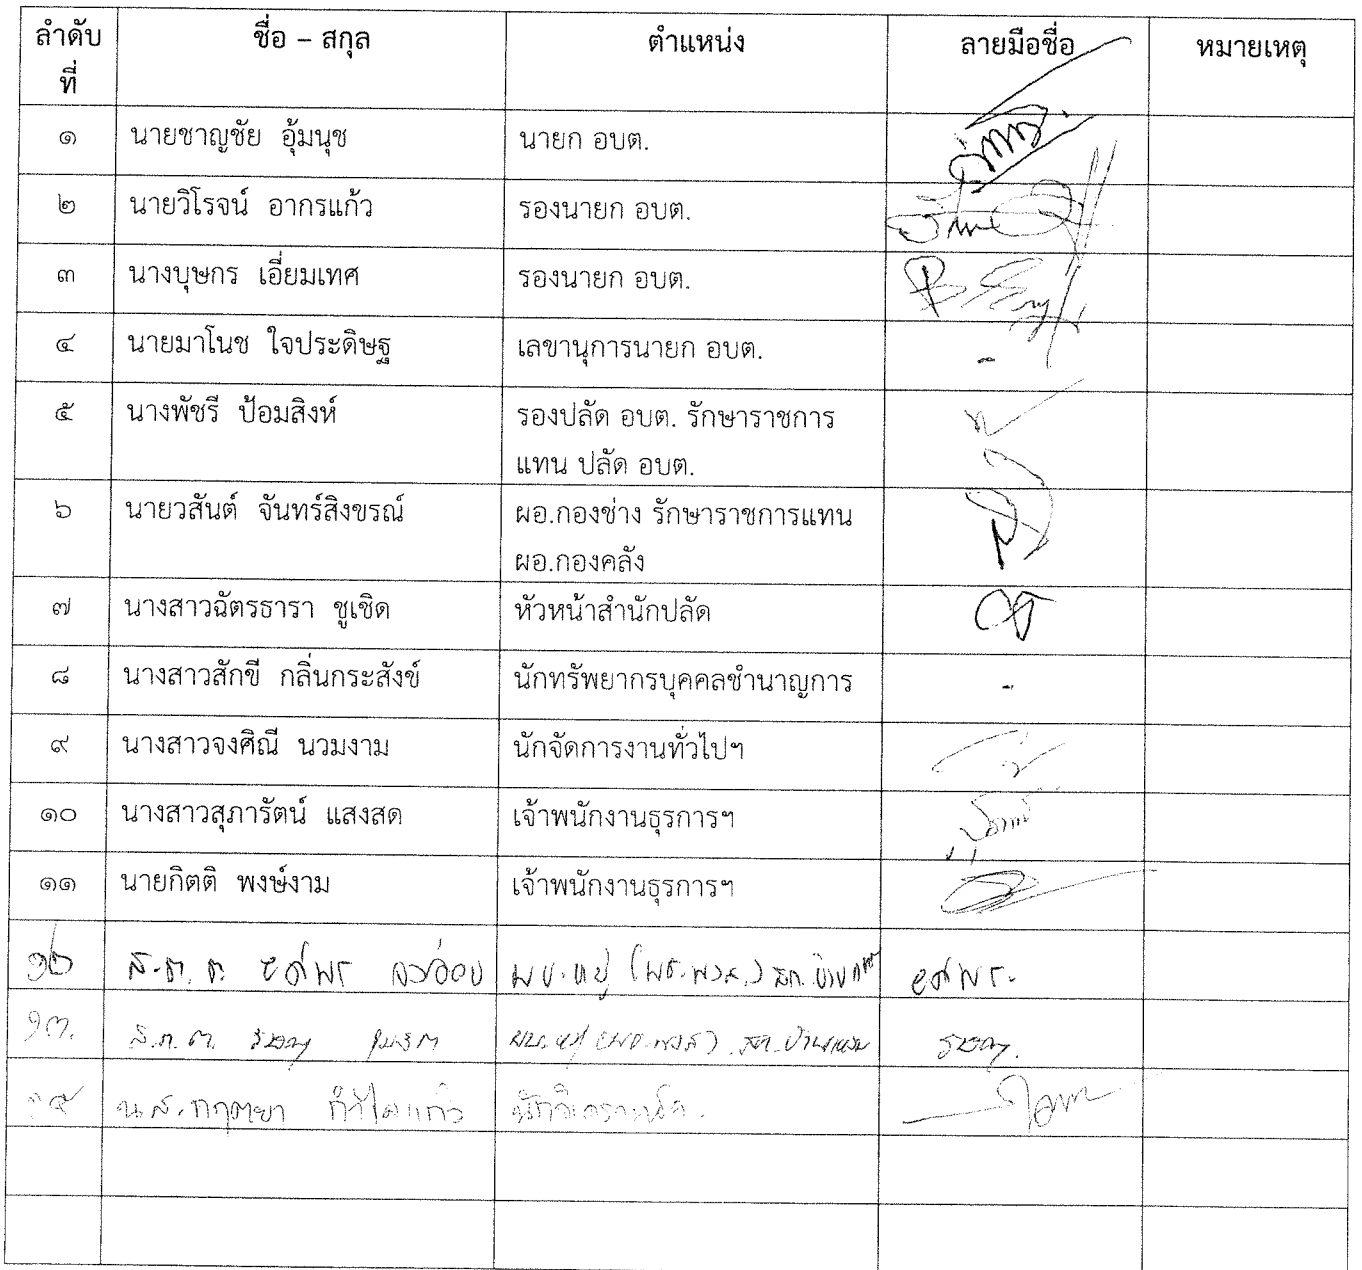 ลำดับ ชื่อ – สกุล ตำแหน่ง ลายมือชื่อ หมายเหตุ
ที่
๑ นายชาญชัย อุ้มนุช นายก อบต.
๒ นายวิโรจน์ อากรแก้ว รองนายก อบต.
๓ นางบุษกร เอี่ยมเทศ รองนายก อบต.
๔ นายมาโนช ใจประดิษฐ เลขานุการนายก อบต. -
๕ นางพัชรี ป้อมสิงห์ รองปลัด อบต. รักษาราชการ
แทน ปลัด อบต.
๖ นายวสันต์ จันทร์สิงขรณ์ ผอ.กองช่าง รักษาราชการแทน
ผอ.กองคลัง
๗ นางสาวฉัตรธารา ชูเชิด หัวหน้าสำนักปลัด
๘ นางสาวสักขี กลิ่นกระสังข์ นักทรัพยากรบุคคลชำนาญการ -
๙ นางสาวจงศิณี นวมงาม นักจัดการงานทั่วไปฯ
๑๐ นางสาวสุภารัตน์ แสงสด เจ้าพนักงานธุรการฯ
๑๑ นายกิตติ พงษ์งาม เจ้าพนักงานธุรการฯ
๑๒ ส.ต.ต.
๑๓. ส.ต.ต.
๑๔ น.ส. กฤตยา กำไลแก้ว